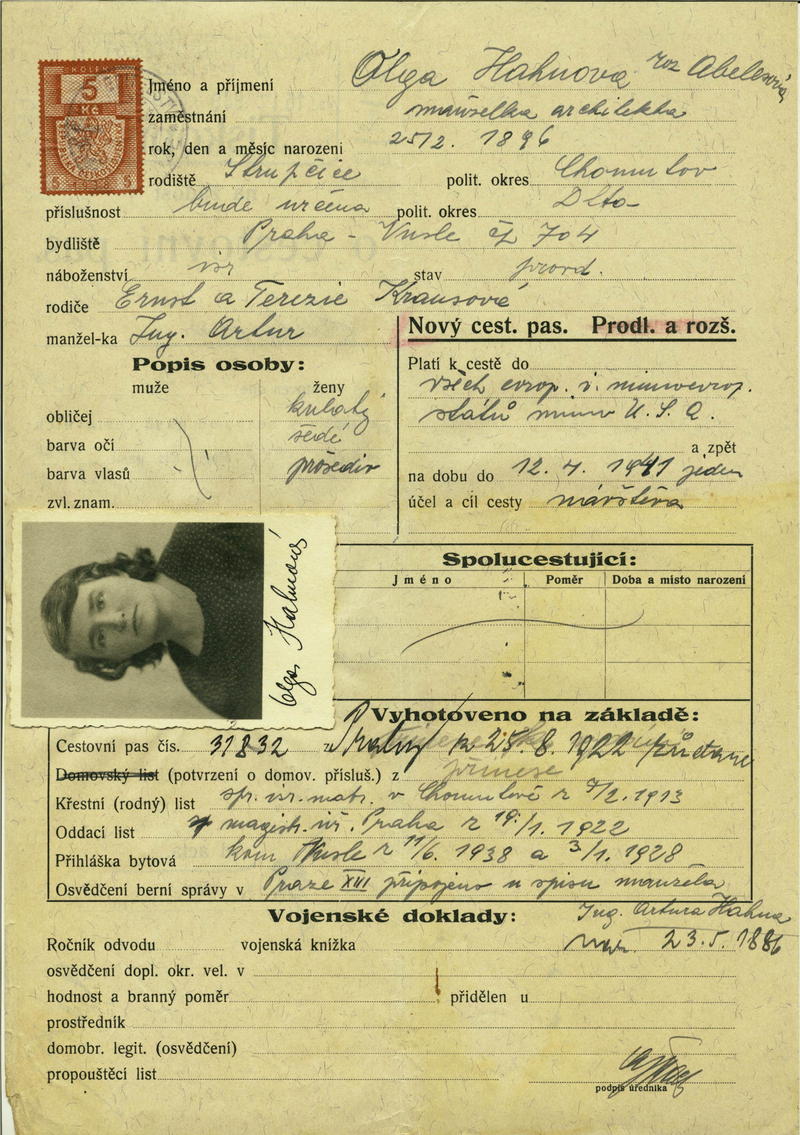 KOLEK
5
Kč
REPUBLIKA ČESKOSLOVENSKÁ
Jméno a příjmení Olga Hahnová roz Abelesová
zaměstnání manželka architekta
rok, den a měsíc narození 25/2. 1896
rodiště Strupčice polit. okres Chomutov
příslušnost bude určena polit. okres Dtto
bydliště Praha - Nusle čp 704
náboženství isr stav provd.
rodiče Ernst a Terezie Krausové
manžel-ka Ing. Artur
Nový cest. pas. Prodl. a rozš.
Popis osoby:
muže ženy
obličej kulatý
barva očí šedé
barva vlasů prošediv
zvl. znam.
Platí k cestě do
všech evrop. i. mimoevrop.
států mimo U.S.A.
a zpět
na dobu do 12. 4. 1941 jeden
účel a cíl cesty návštěva
Olga Hahnová
Spolucestující:
Jméno Poměr Doba a místo narození
Vyhotoveno na základě:
Cestovní pas čís. 31832 z Prahy z 25. 8. 1922
Domovský list (potvrzení o domov. přísluš.) z přinese
Křestní (rodný) list isr. matr. v Chomutově z 1913
Oddací list magistr. Praha z 19/1. 1922
Přihláška bytová kom Nusle z 11/6. 1938 a 3/1. 1928
Osvědčení berní správy v Praze XIII připojeno u spisu manžela
Ing. Artura Hahna
Vojenské doklady:
nar. 23. 5. 1886
Ročník odvodu vojenská knížka
osvědčení dopl. okr. vel. v
hodnost a branný poměr přidělen u
prostředník
domobr. legit. (osvědčení)
propouštěcí list
podpis úředníka